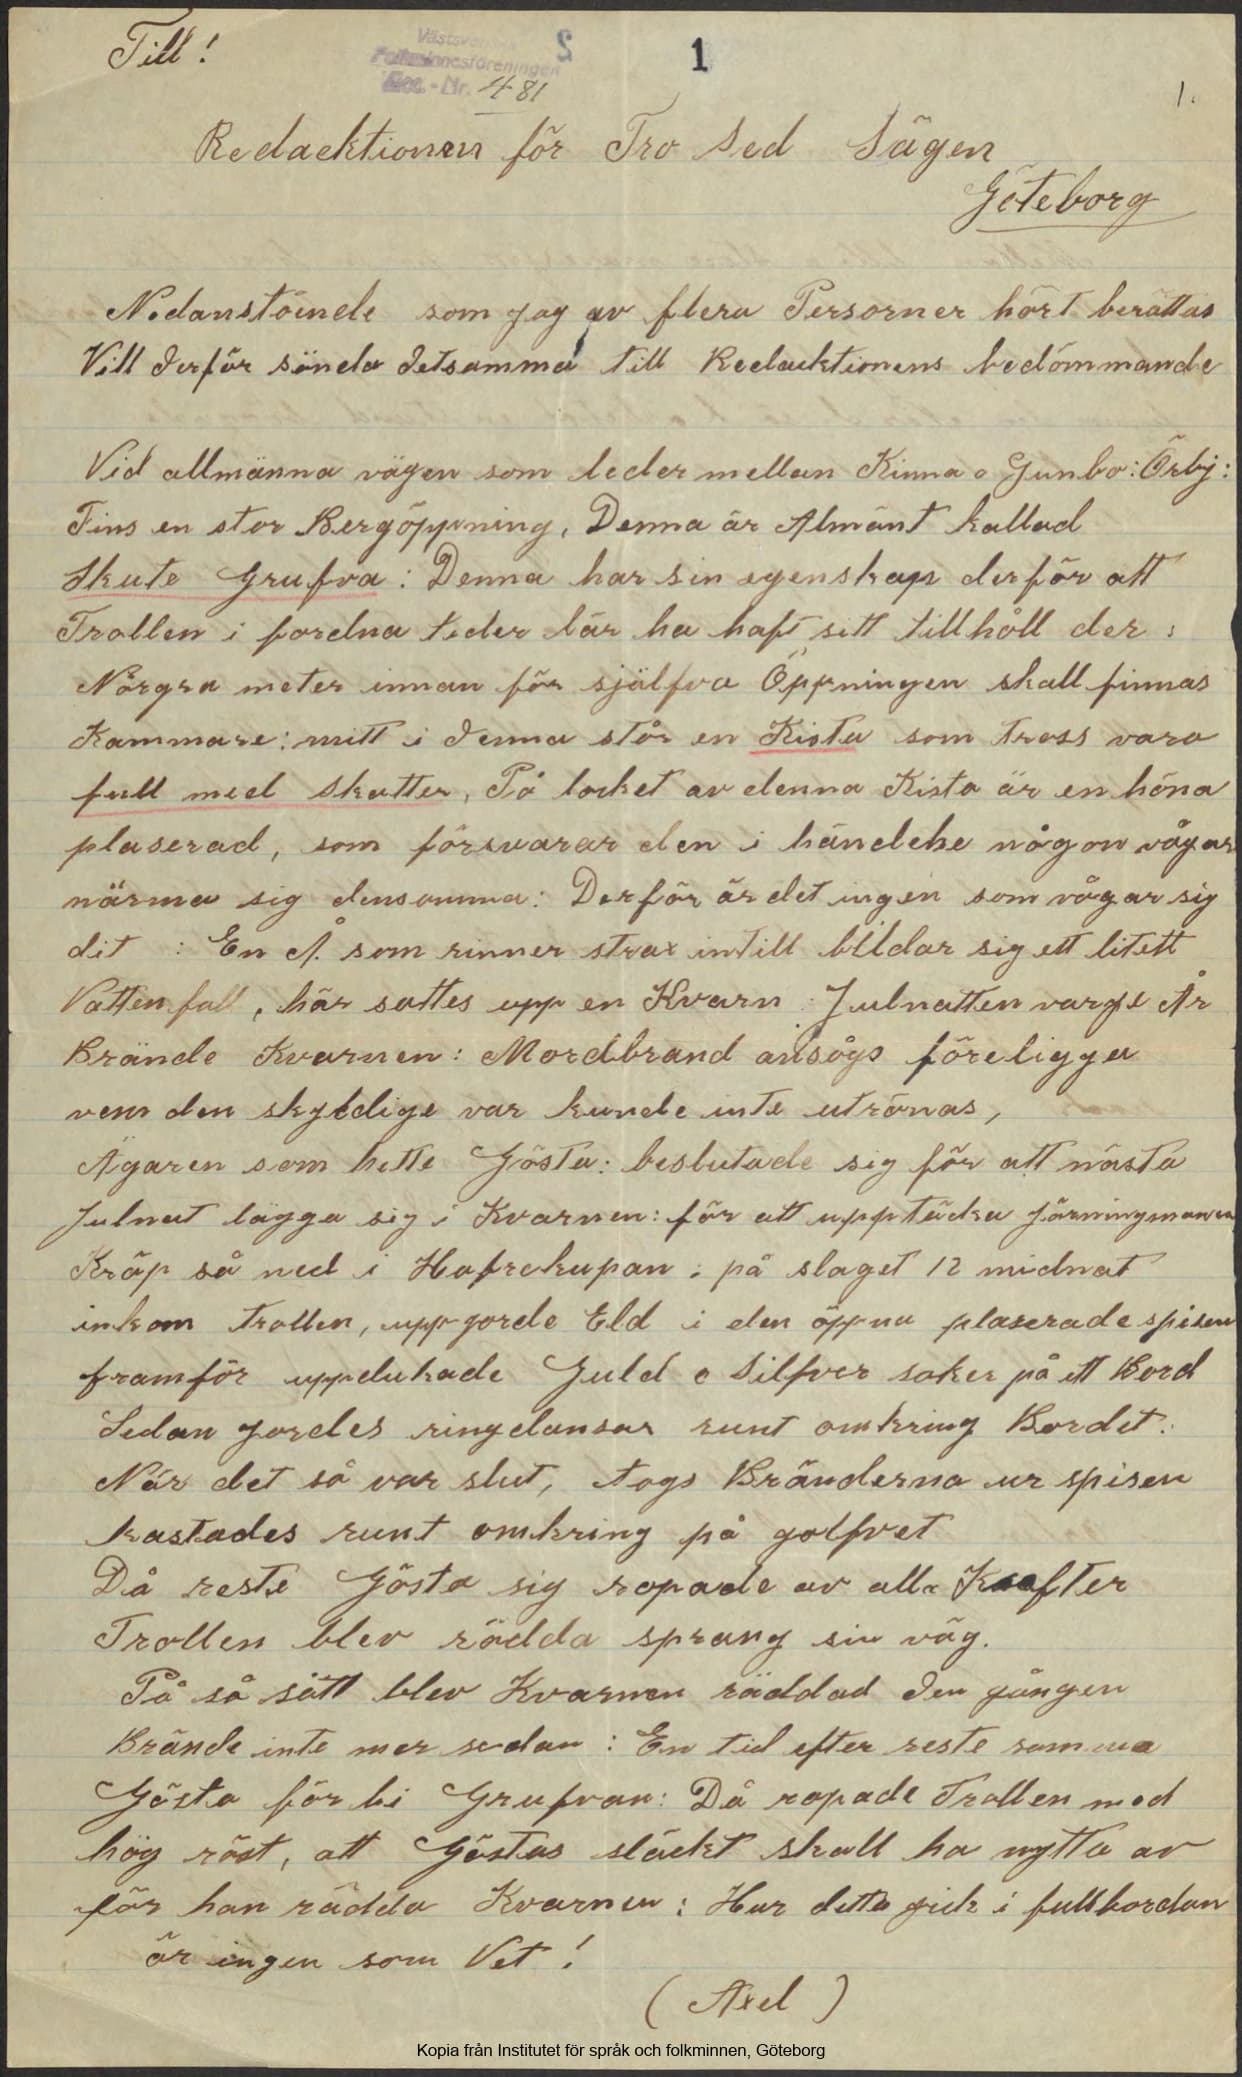 Till!
Västsvenska
Folkminnesföreningen
Acc.-Nr. 481
2
1
1.
Redacktionen för Tro Sed Sägen
Göteborg
Nedanstående som jag av flera Personer hört berättas
Vill derför sända detsamma till Redacktionens bedömmande
Vid allmänna vägen som leder mellan Kinna o Gunbo: Örby:
Fins en stor Bergöppning, Denna är Almänt kallad
Skute Grufva: Denna har sin egenskap derför att
Trollen i fordna tider lär ha haft sitt tillhåll der:
Några meter innan för själfva Öppningen skall finnas
Kammare: mitt i denna står en Kista som tross vara
full med Skatter, På locket av denna Kista är en höna
plaserad, som försvarar den i händelse någon vågar
närma sig densamma: Derför är det ingen som vågar sig
dit : En Å som rinner strax intill bildar sig ett litett
Vattenfall, här sattes upp en Kvarn: Julnatten varge År
Brände Kvarnen: Mordbrand ansågs föreligga
vem den skyldige var kunde inte utrönas,
Ägaren som hette Gösta: beslutade sig för att nästa
Julnat lägga sig i Kvarnen: för att upptäcka järningmannen
Kröp så ned i Hafrekupan: på slaget 12 midnat
inkom trollen, uppgorde Eld i den öppna plaserade spisen
framför uppdukade Guld o Silfver saker på ett Bord
Sedan gordes ringdansar runt omkring Bordet:
När det så var slut, togs Bränderna ur spisen
kastades runt omkring på golfvet
Då reste Gösta sig ropade av alla Krafter
Trollen blev rädda sprang sin väg.
På så sätt blev Kvarnen räddad den gången
Brände inte mer sedan: En tid efter reste samma
Gösta förbi Grufvan: Då ropade Trollen med
hög röst, att Göstas släckt skall ha nytta av
för han rädda Kvarnen: Hur detta gick i fullbordan
är ingen som Vet!
(Axel)
Kopia från Institutet för språk och folkminnen, Göteborg